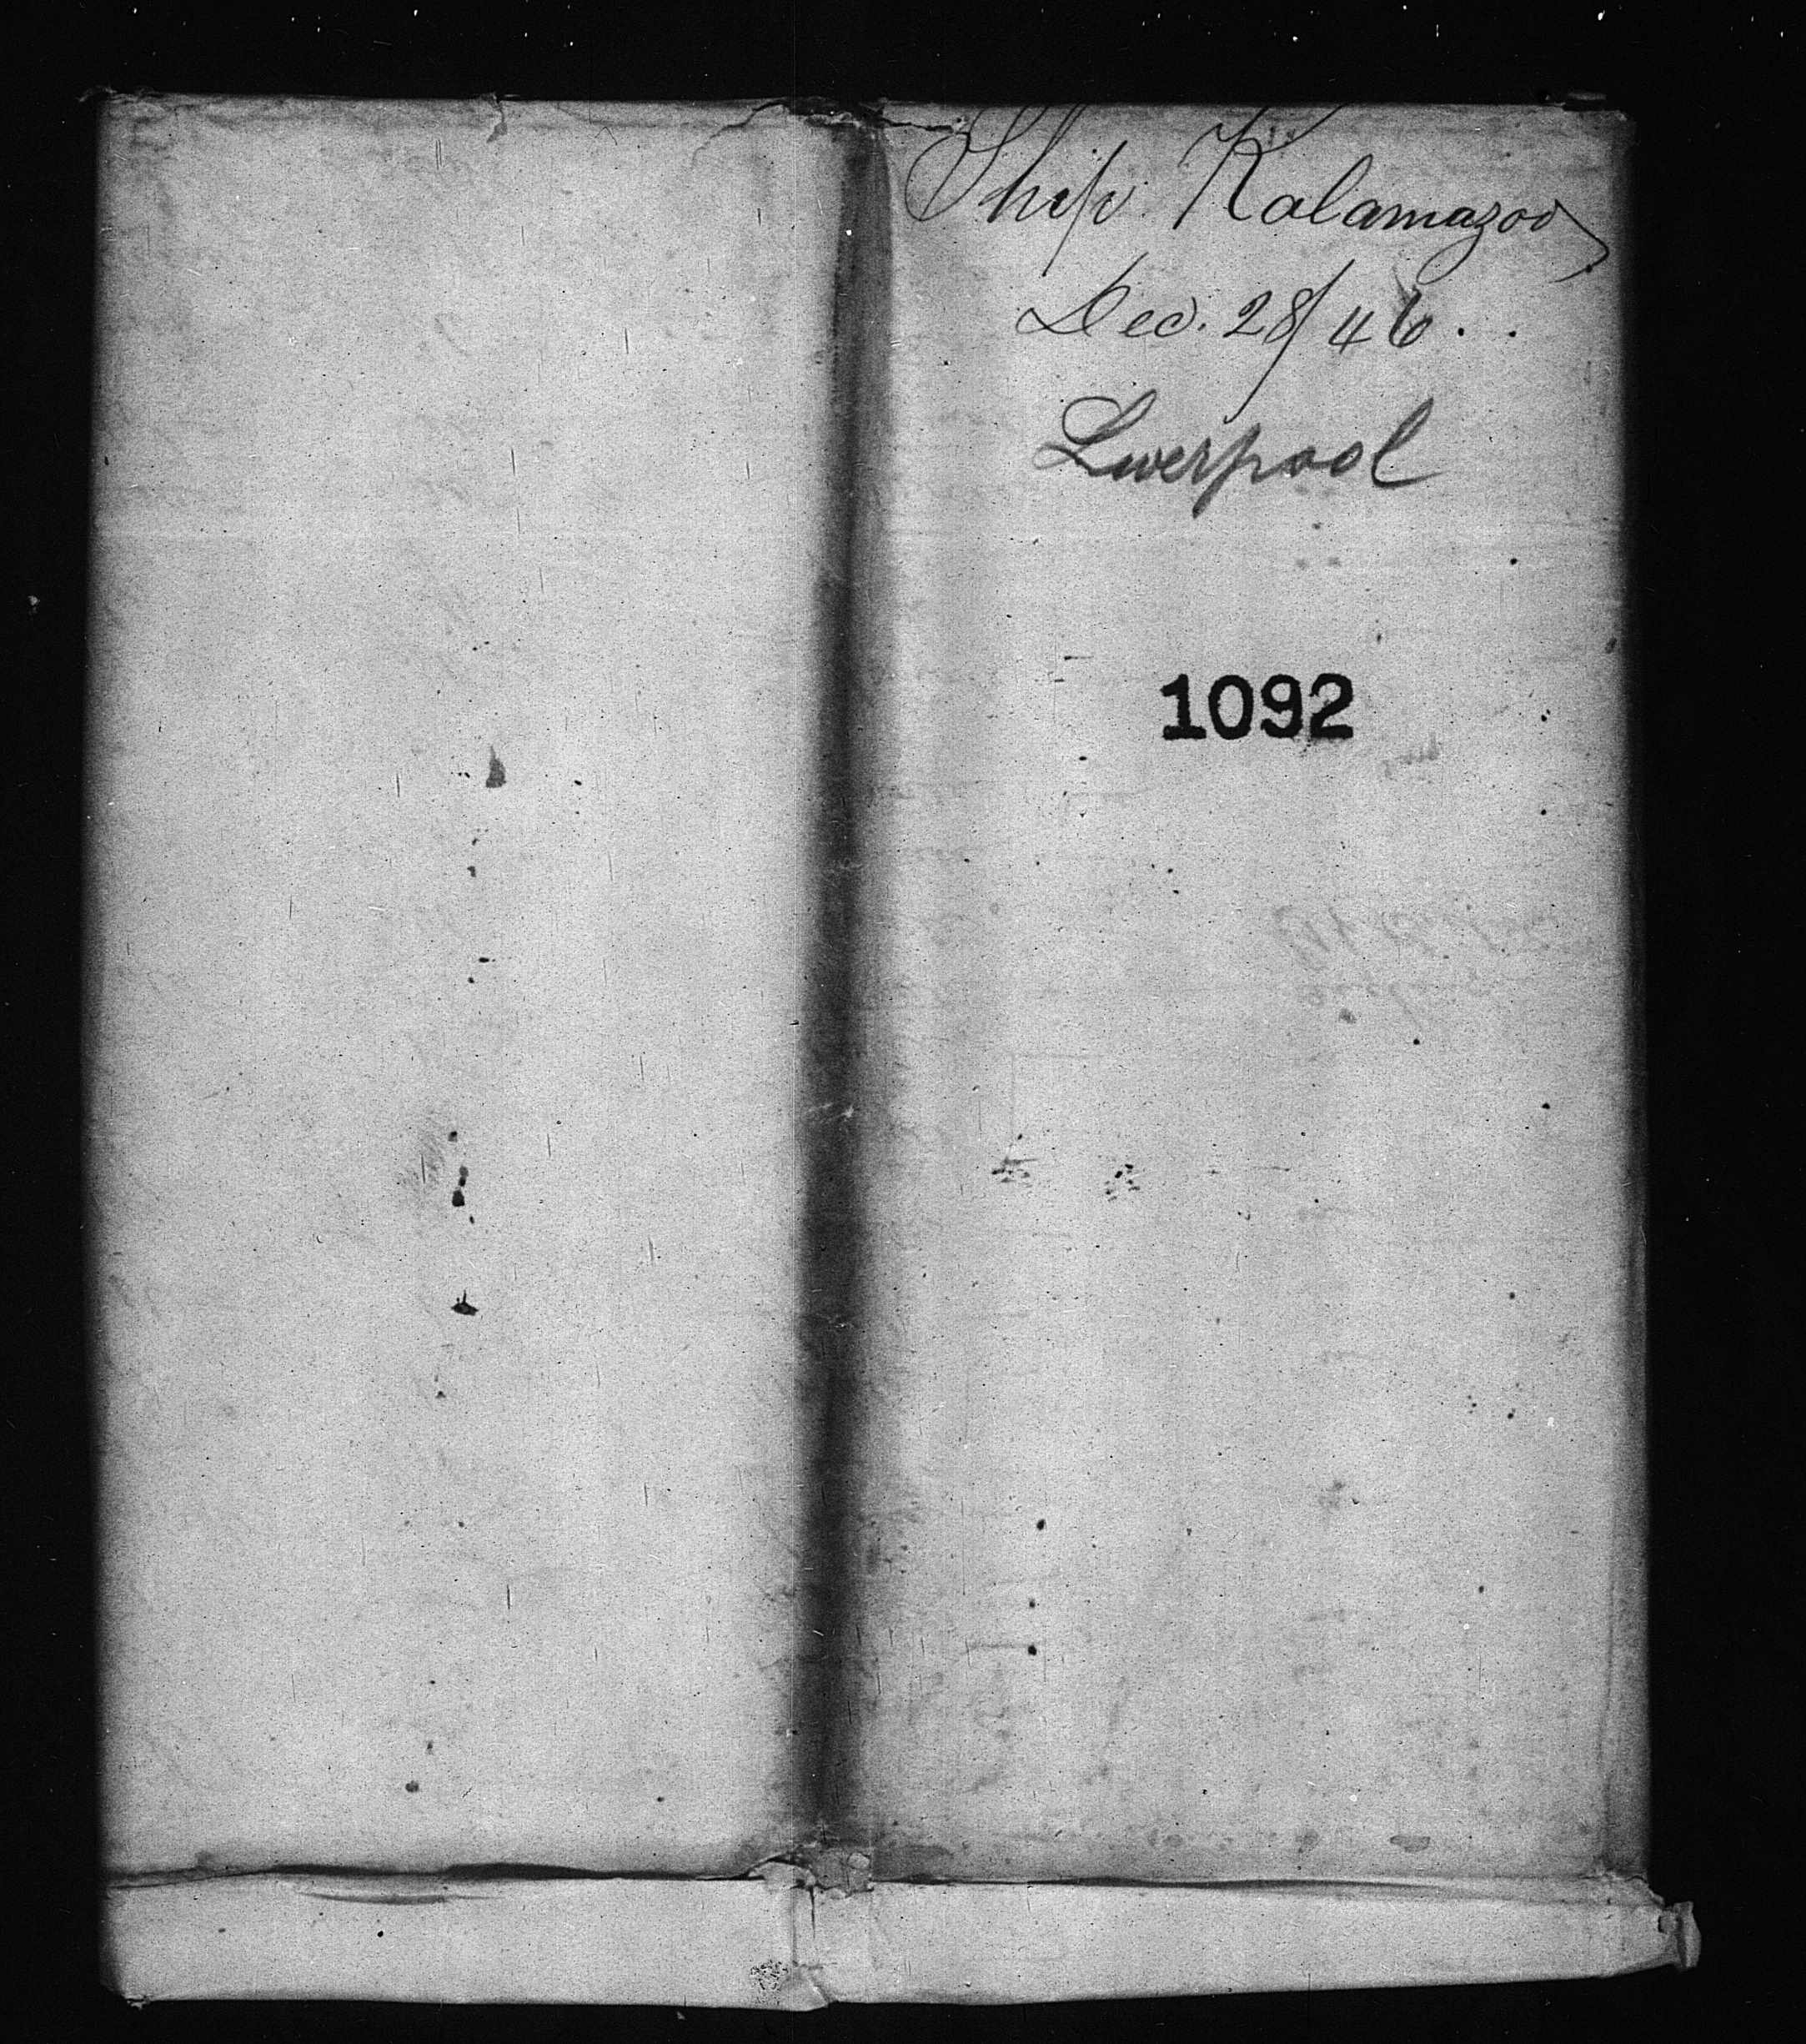 Ship Kalamazoo
Dec. 28/46.
Liverpool
1092